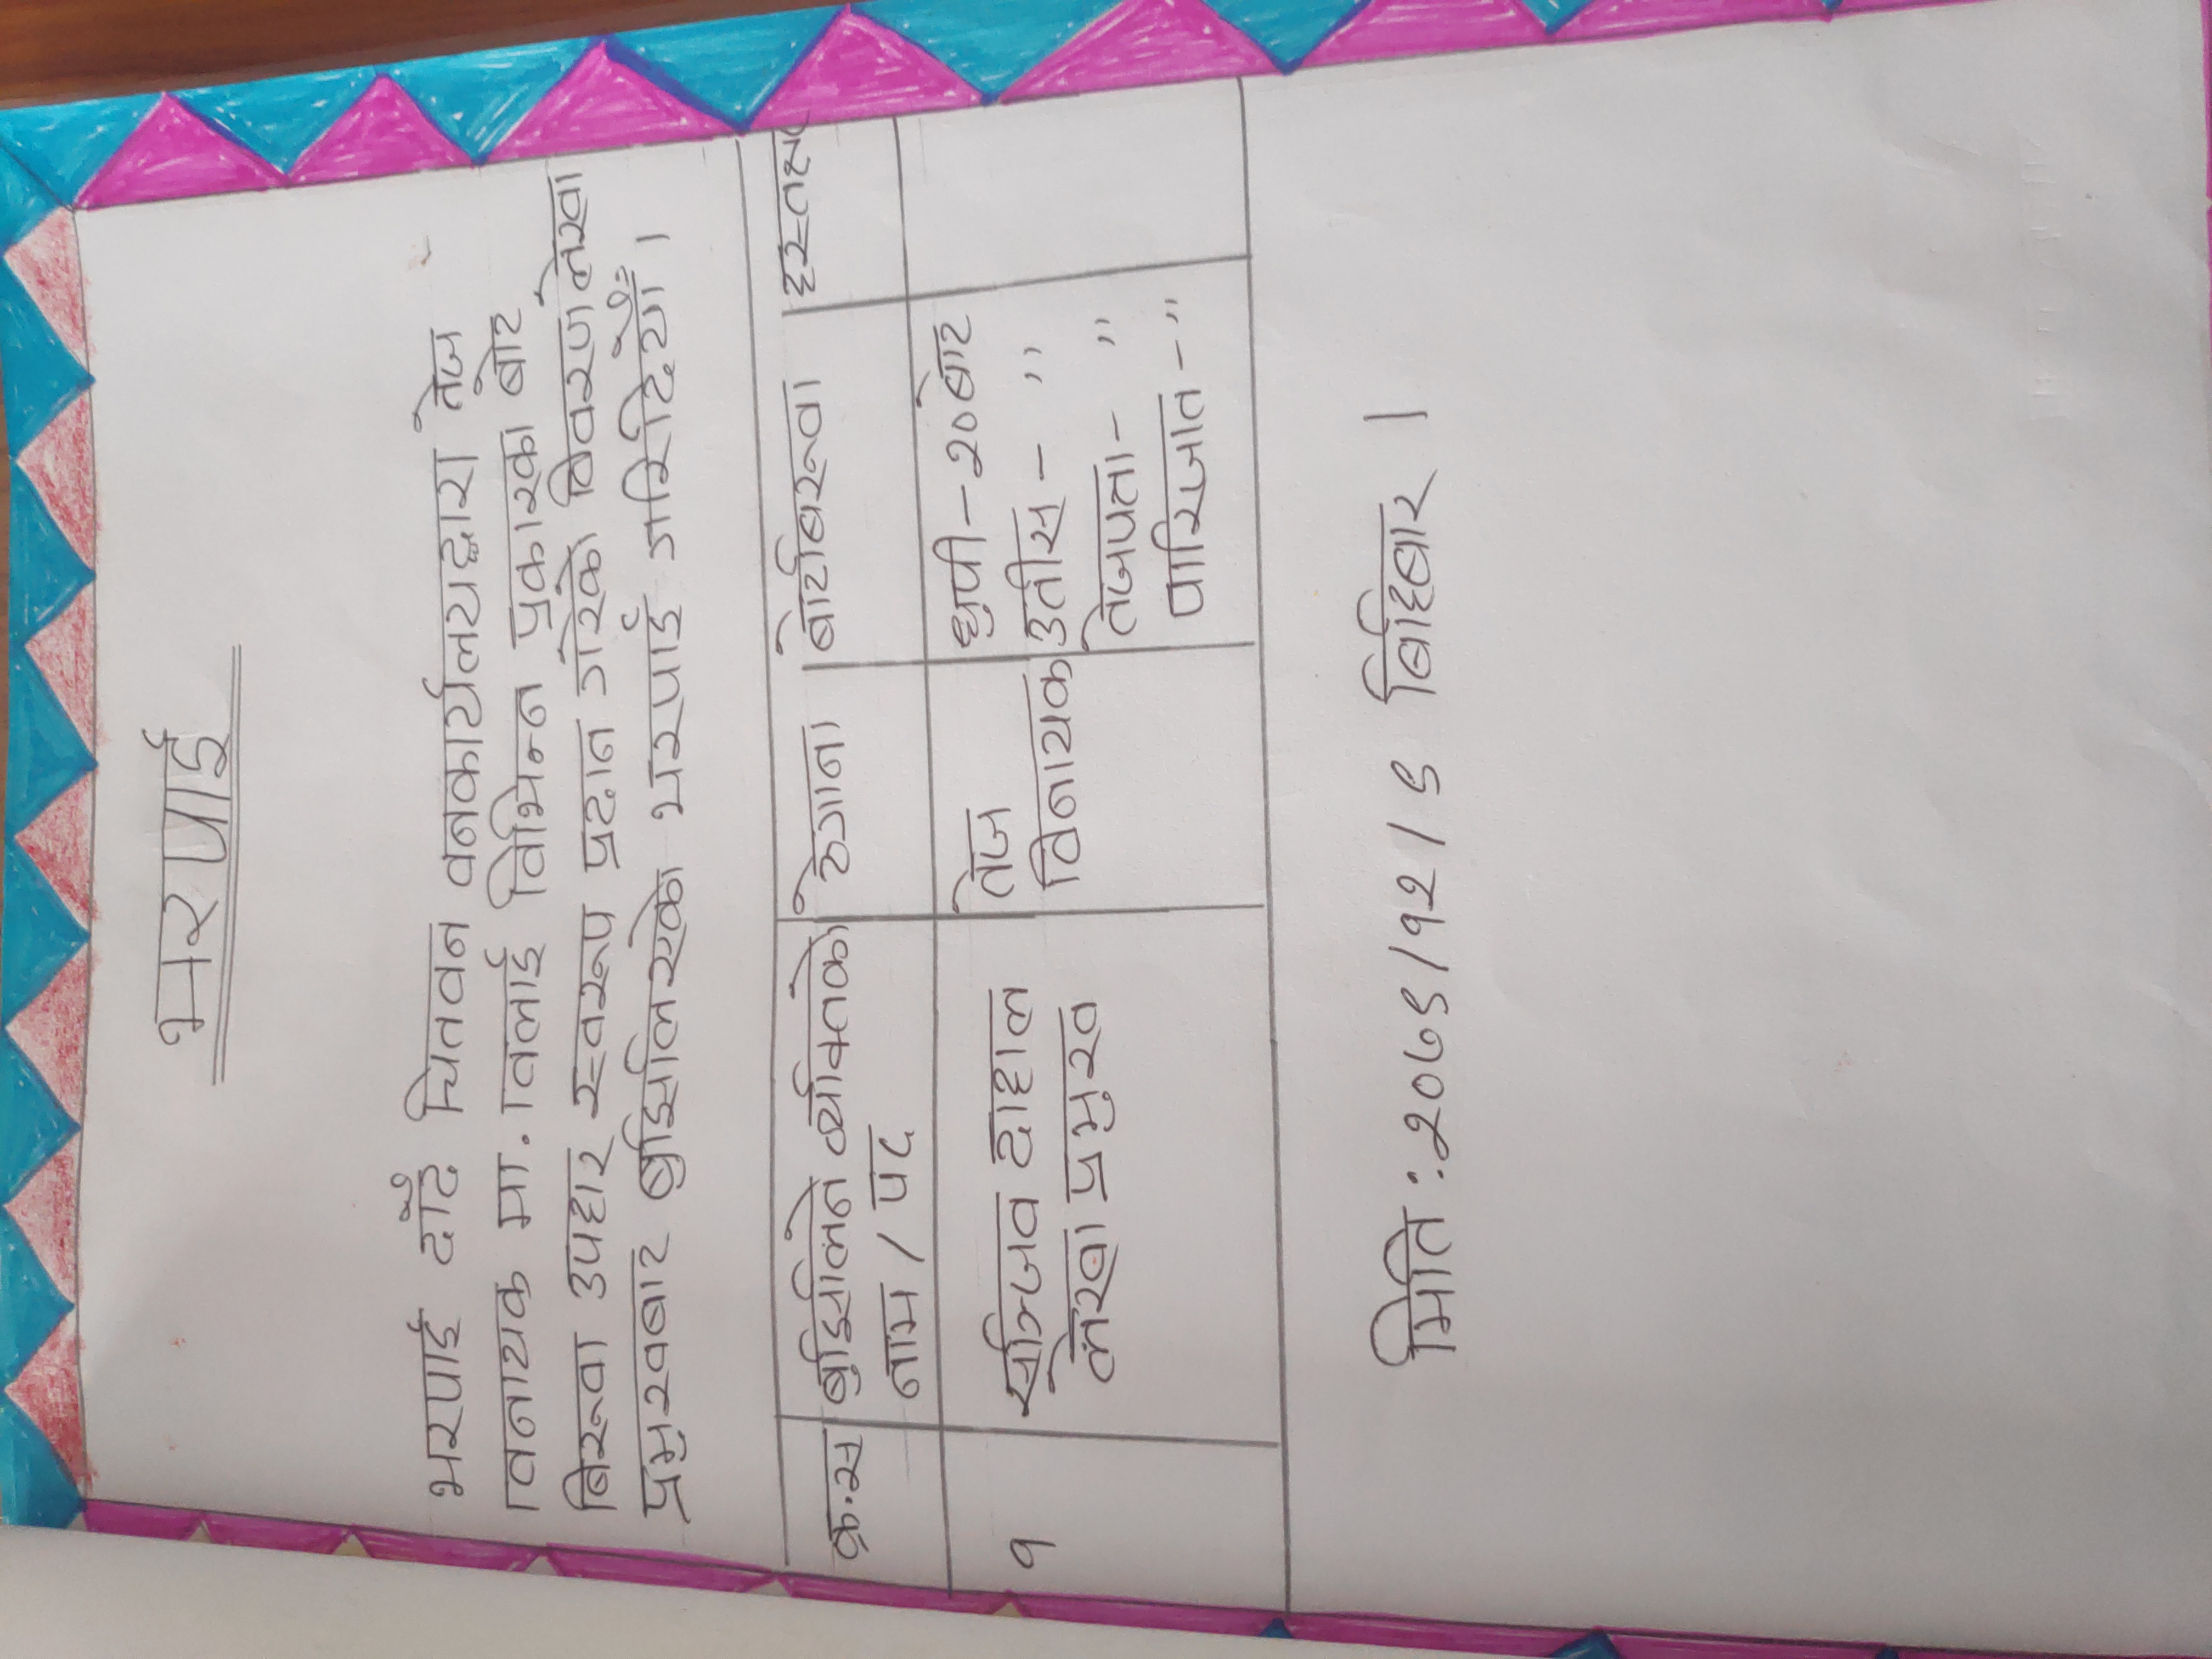 भरपाई
भरपाई दाँदै चितवन वनकार्यलयद्वारा तेज
विनायक मा. विलाई विभिन्न प्रकारका बोट
बिरूवा उपहार स्वरूप प्रदान गरेको विवरण लेखा
प्रमुखबाट बुझिलिएको भरपाई गरिदियौँ ।
क्र.स बुझिलिने व्यक्तिको ठेगाना बोटबिरूवा हस्तक्षर
नाम / पद
१ सञ्जिव दाहाल तेज धुपी - २० बोट
लेखा प्रमुख विनायक उतीस - ''
तेजपत्ता - ''
पारिजात - ''
मिति : २०७९/१२/९ बिहिबार ।